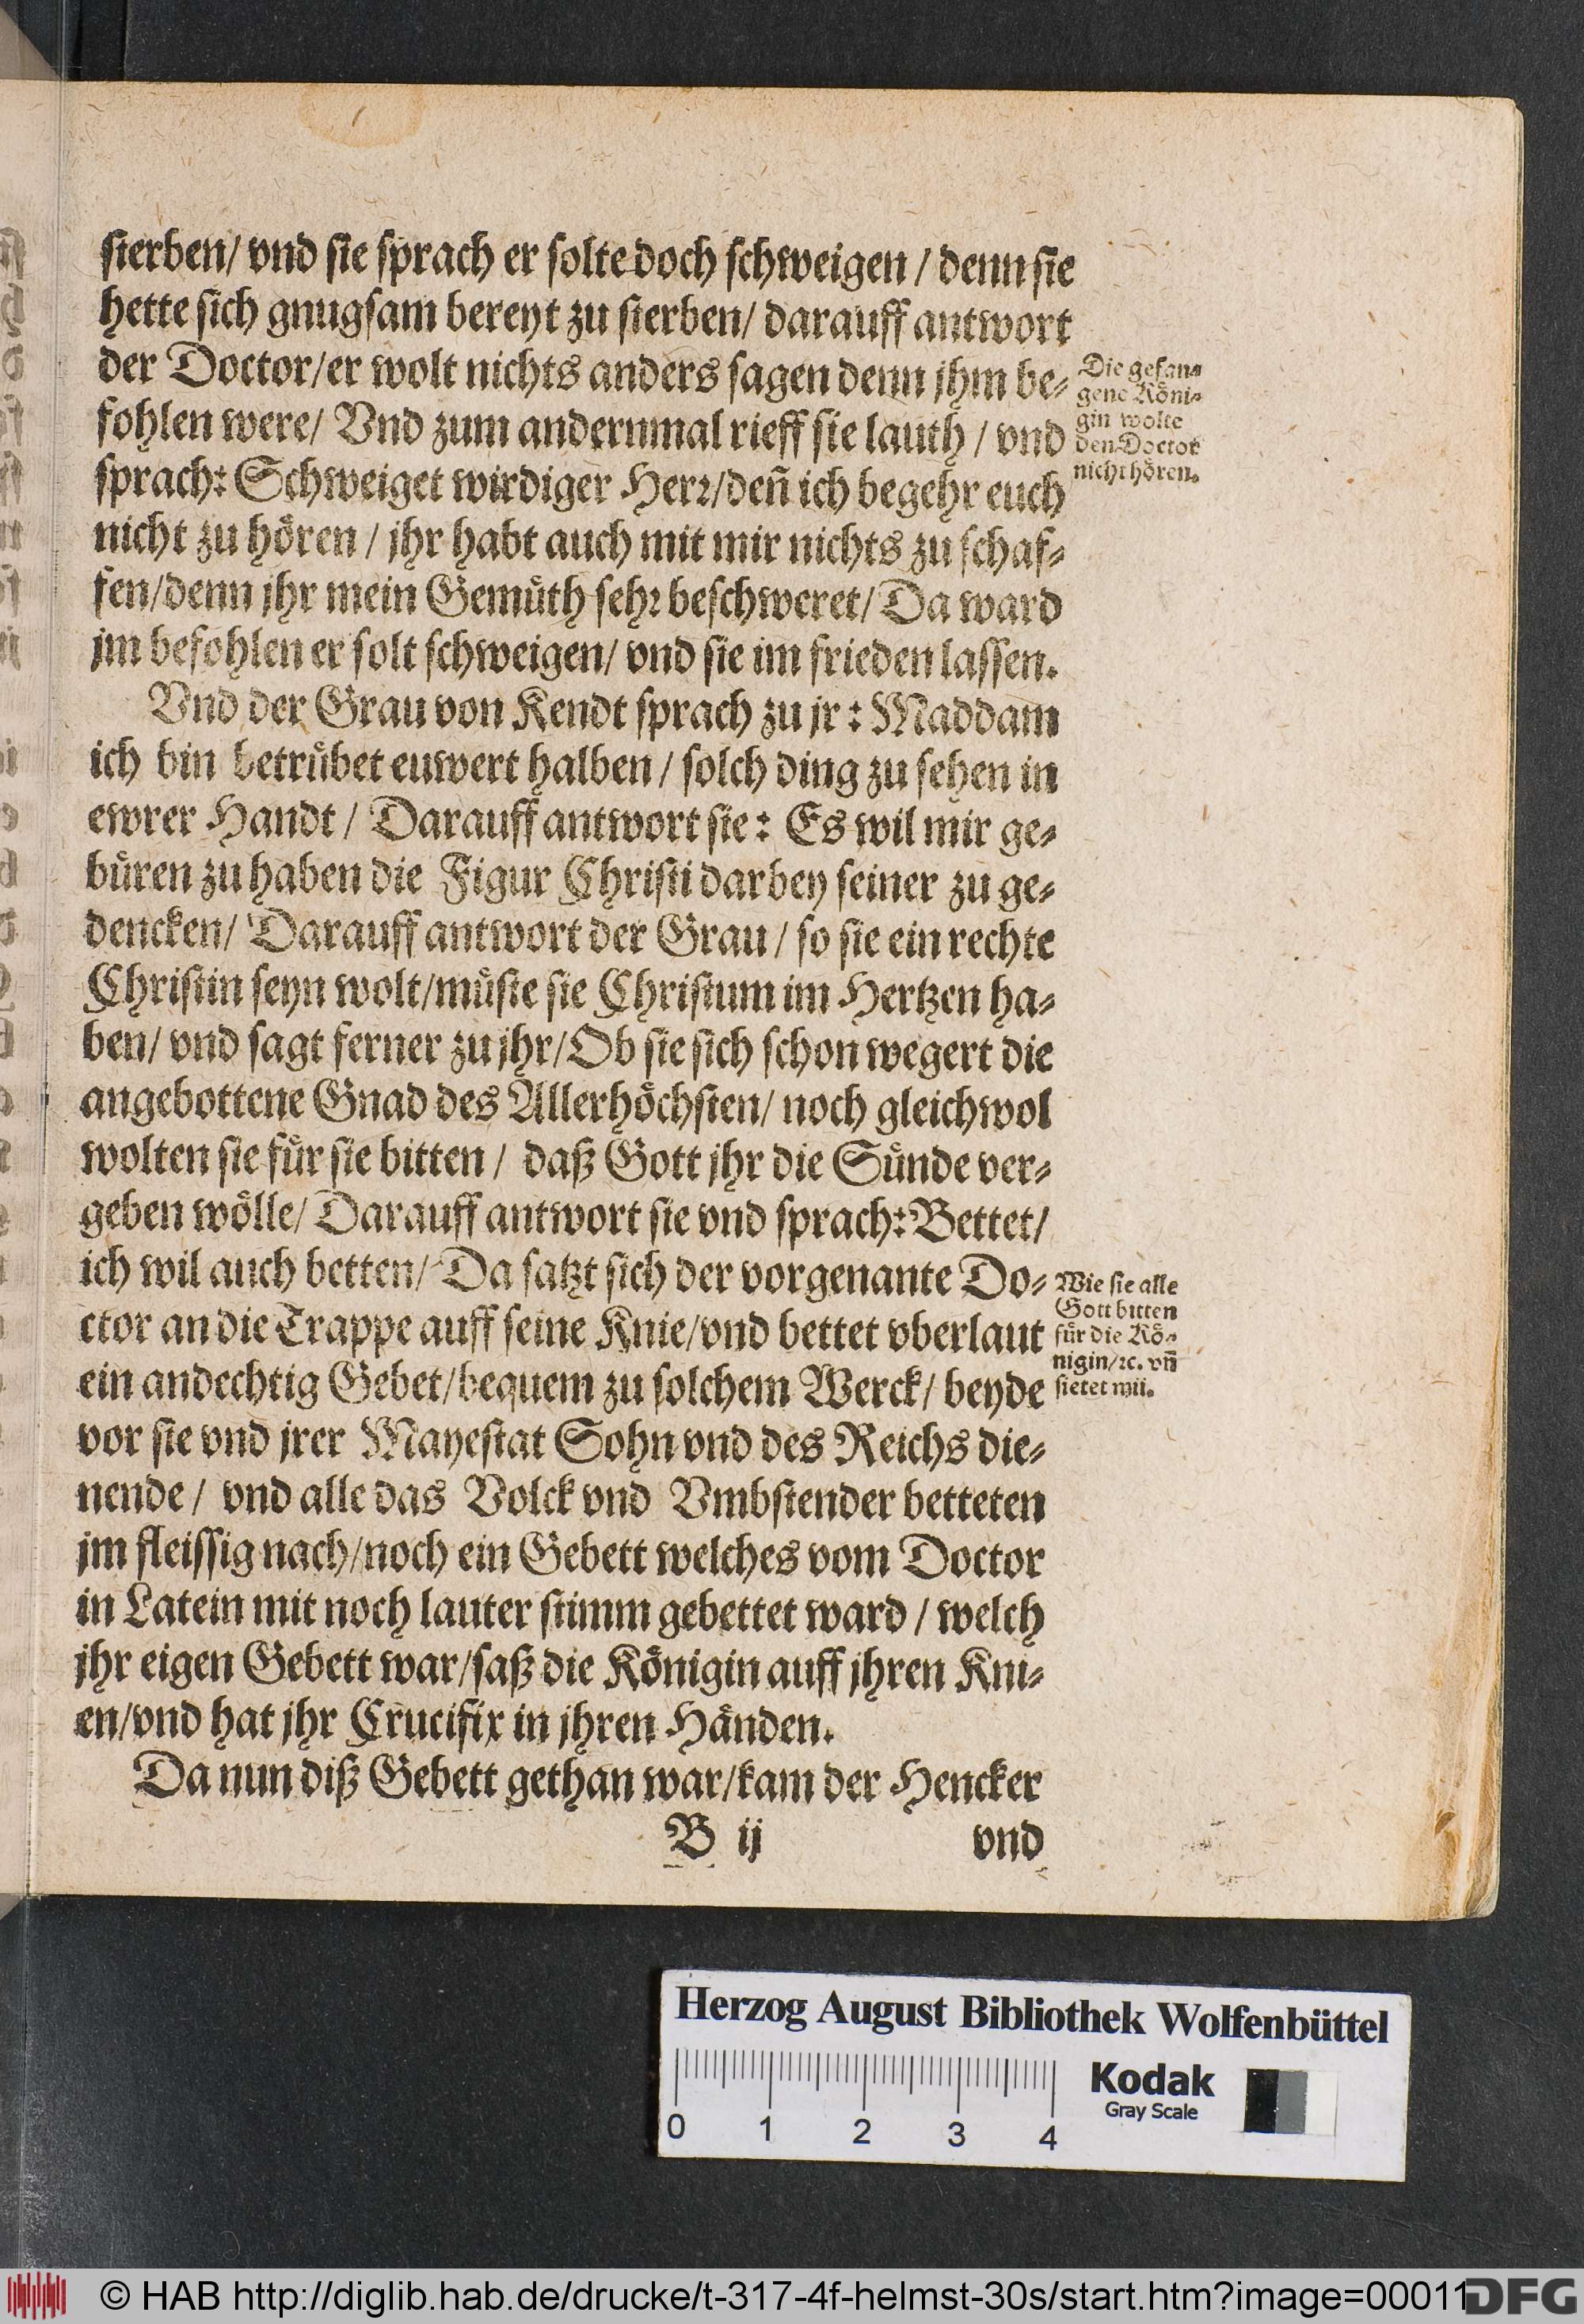 sterben/ vnd sie sprach er solte doch schweigen / denn sie
hette sich gnugsam bereyt zu sterben/ darauff antwort
der Doctor/er wolt nichts anders sagen denn jhm be⸗
fohlen were/ Vnd zum andernmal rieff sie lauth / vnd
sprach: Schweiget wirdiger Herꝛ/deñ ich begehr euch
nicht zu hoͤren / jhr habt auch mit mir nichts zu schaf⸗
fen/denn jhr mein Gemuͤth sehꝛ beschweret/ Da ward
jm befohlen er solt schweigen/ vnd sie im frieden lassen.
Die gefan⸗
gene Koͤni⸗
gin wolte
den Doctor
nicht hoͤren.
Vnd der Grau von Kendt sprach zu jr : Maddam
ich bin betruͤbet euwert halben / solch ding zu sehen in
ewrer Handt / Darauff antwort sie : Es wil mir ge⸗
buͤren zu haben die Figur Christi darbey seiner zu ge⸗
dencken/ Darauff antwort der Grau / so sie ein rechte
Christin seyn wolt/muͤste sie Christum im Hertzen ha⸗
ben/ vnd sagt ferner zu jhr/Ob sie sich schon wegert die
angebottene Gnad des Allerhoͤchsten/ noch gleichwol
wolten sie fuͤr sie bitten / daß Gott jhr die Suͤnde ver⸗
geben woͤlle/ Darauff antwort sie vnd sprach: Bettet/
ich wil auch betten/ Da satzt sich der vorgenante Do⸗
ctor an die Trappe auff seine Knie/vnd bettet vberlaut
ein andechtig Gebet/bequem zu solchem Werck/ beyde
vor sie vnd jrer Mayestat Sohn vnd des Reichs die⸗
nende / vnd alle das Volck vnd Vmbstender betteten
jm fleissig nach/noch ein Gebett welches vom Doctor
in Latein mit noch lauter stimm gebettet ward / welch
jhr eigen Gebett war/saß die Koͤnigin auff jhren Kni⸗
en/vnd hat jhr Crucifix in jhren Haͤnden.
Wie sie alle
Gott bitten
fuͤr die Koͤ⸗
nigin/ꝛc. vñ
sie
Da nun diß Gebett gethan war/kam der Hencker
B ij
vnd
Herzog August Bibliothek Wolfenbüttel
Kodak
Gray Scale
0 1 2 3 4
© HAB http://diglib.hab.de/drucke/t-317-4f-helmst-30s/start.htm?image=00011
DFG